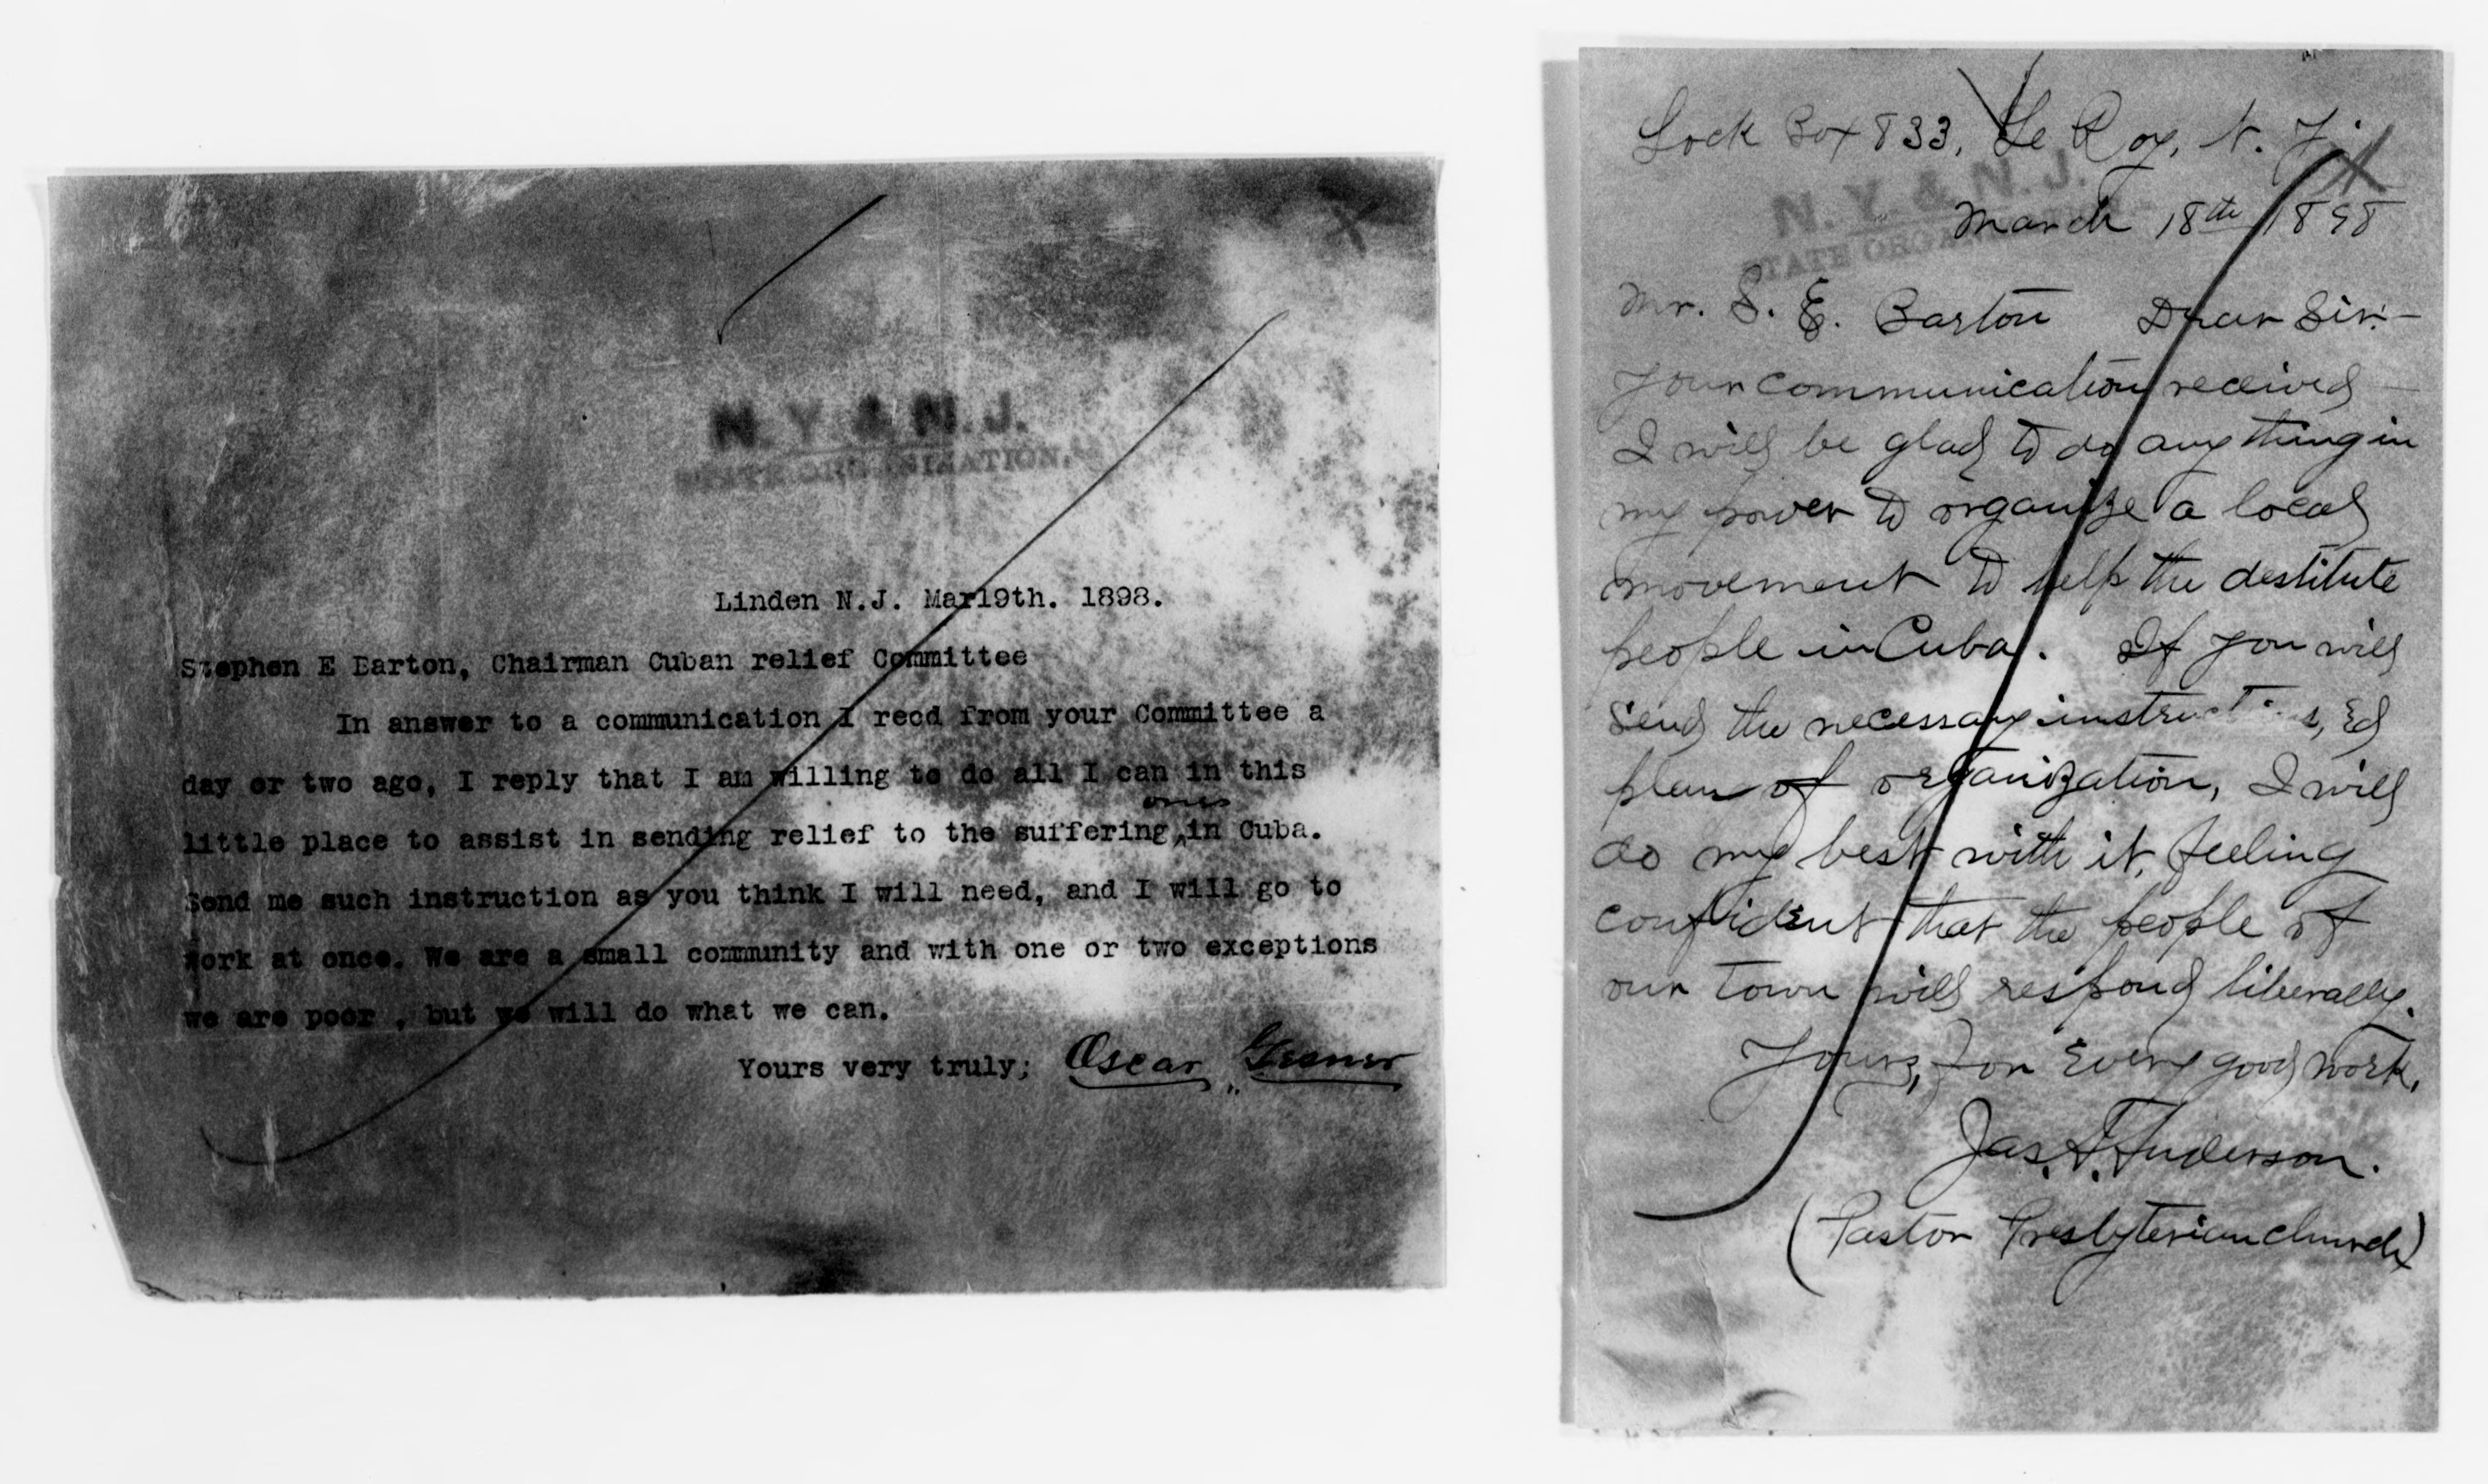 N. Y. & N. J.
STATE ORGANIZATION.
Linden N.J. Mar19th. 1898.
Stephen E Barton, Chairman Cuban relief Committee
In answer to a communication I recd from your Committee a
day or two ago, I reply that I am willing to do all I can in this
ones
little place to assist in sending relief to the suffering^in Cuba.
Send me such instruction as you think I will need, and I will go to
work at once. We are a small community and with one or two exceptions
we are poor , but we will do what we can.
Yours very truly; Oscar Gesner
Lock Box 833, Le Roy, N. Y.
N. Y. & N. J.
STATE ORGANIZATION
March 18th 1898
Mr. S. E. Barton Dear Sir:-
Your communication received -
I will be glad to do anything in
my power to organize a local
movement to help the destitute
people in Cuba. If you will
send the necessary instructions, &
plan of organization, I will
do my best with it, feeling
confident that the people of
our town will respond liberally.
Yours, for every good work,
Jas. A. Anderson.
(Pastor Presbyterian church)